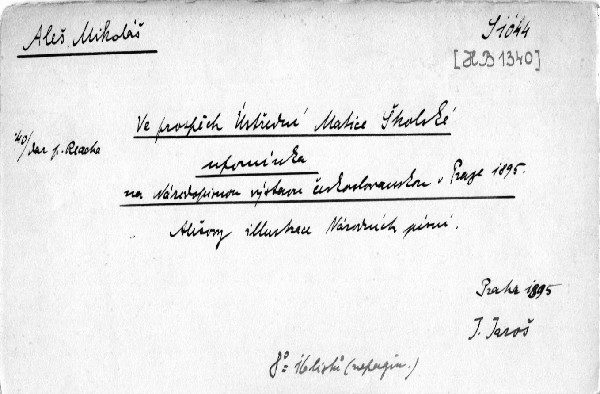 Aleš Mikoláš
S 1644
[HB 1340]
Ve prospěch Ústřední Matice Školské
40/dar p. Reacha
upomínka
na Národopisnou výstavu českoslovanskou v Praze 1895.
Alšovy illustrace Národních písní.
Praha 1895
J. Jaroš
8° 16 listů (nepagin.)